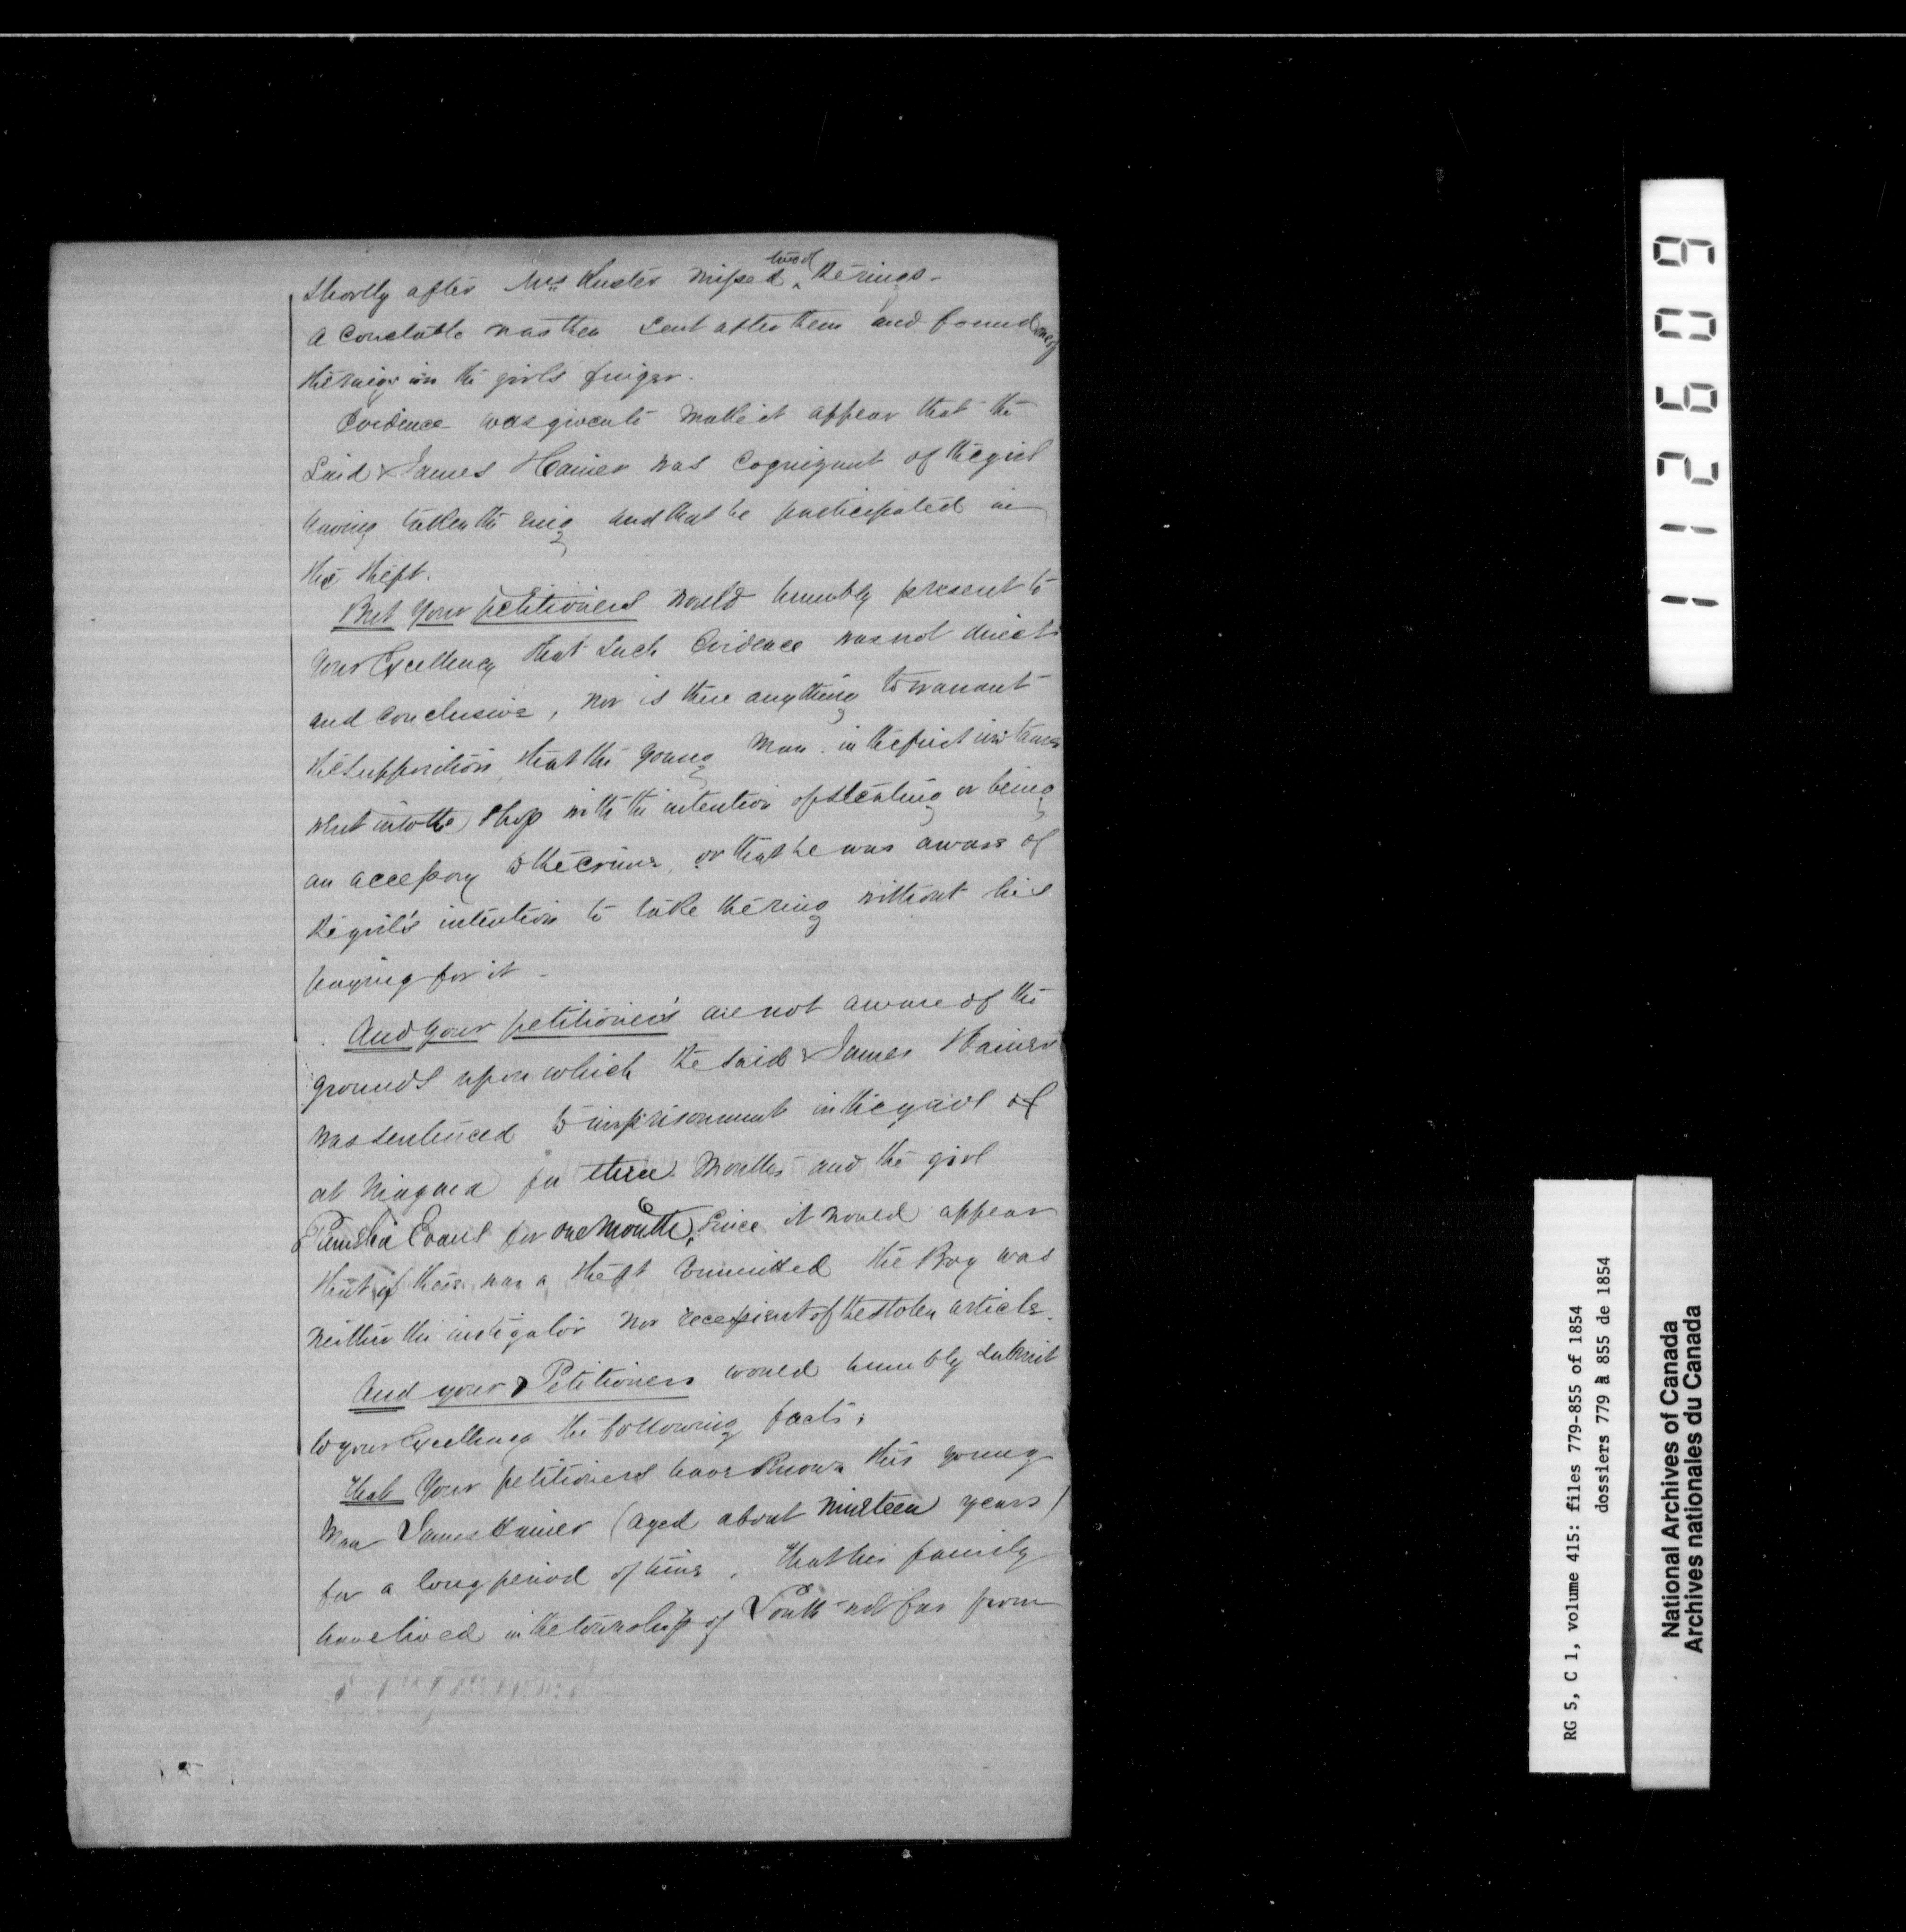 Shortly after Mrs Kuster missed two of the rings -
A Constable was then sent after them and found one of
the rings on the girls finger.
Evidence was given to make it appear that the
Said James Hainer was Cognizant of the girl
having taken the ring and that he participated in
the theft.
But Your petitioners would humbly present to
Your Excellency that such Evidence was not direct
and Conclusive, nor is there anything to warrant
the supposition that the young Man in the first instance
went into the Shop with the intention of stealing or being
an accessory to the crime, or that he was aware of
the girl's intention to take the ring without his
paying for it -
And your petitioners are not aware of the
grounds upon which the said James Hainer
was sentenced to imprisonment in the gaol of
at Niagara for three Months and the girl
Evans for one Month, Since it would appear
that if there was a theft Committed the Boy was
neither the instigator nor recepient of the stolen article.
And your Petitioners would humbly submit
to your Excellency the following facts:
That Your petitioners have known this young
Man James Hainer (aged about nineteen years)
for a long period of time, that his family
have lived in the township of Louth not far from
1112609
RG 5, C 1, volume 415: files 779-855 of 1854
dossiers 779 à 855 de 1854
National Archives of Canada
Archives nationales du Canada